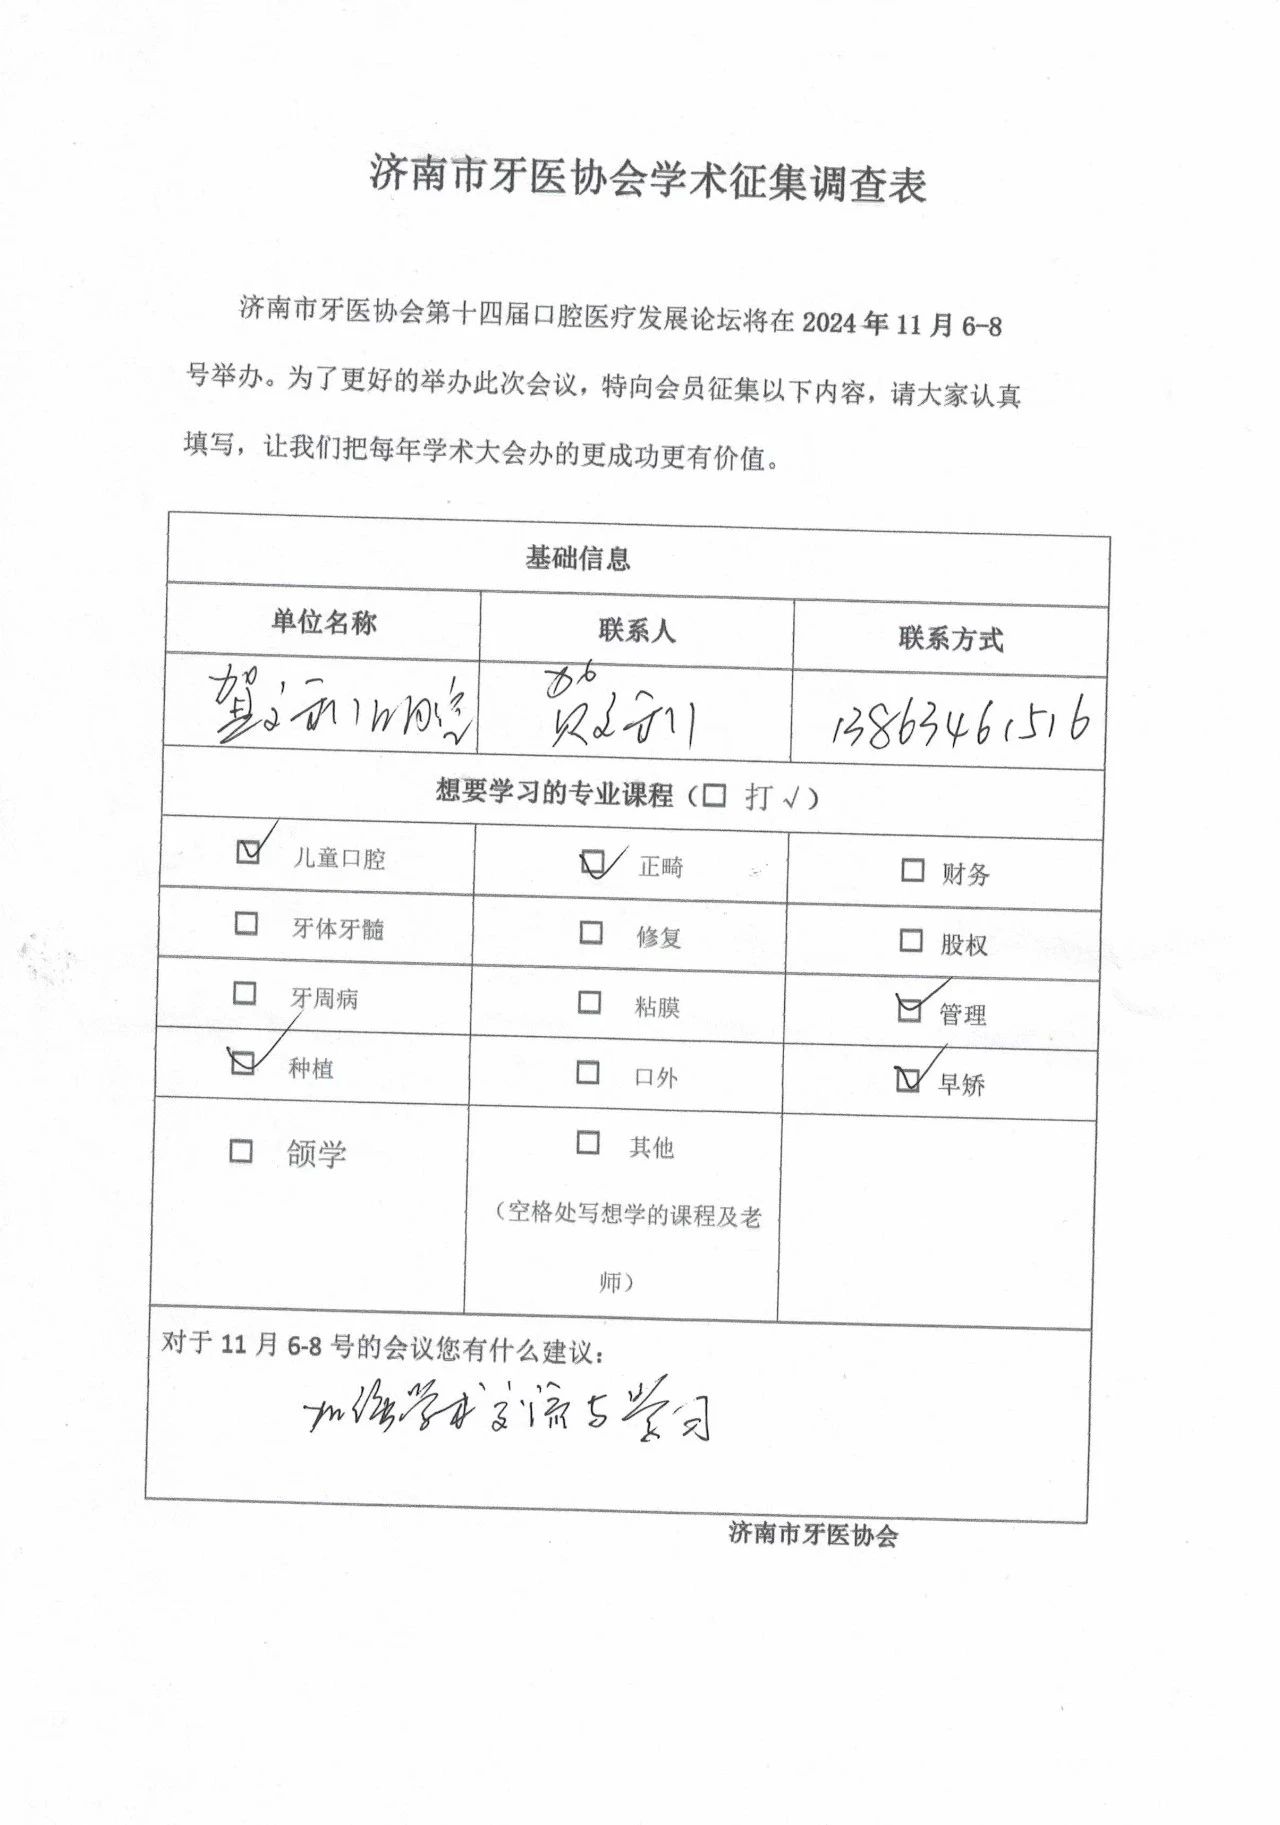 济南市牙医协会学术征集调查表
济南市牙医协会第十四届口腔医疗发展论坛将在 2024 年 11 月 6-8
号举办。为了更好的举办此次会议，特向会员征集以下内容，请大家认真
填写，让我们把每年学术大会办的更成功更有价值。
基础信息
单位名称 联系人 联系方式
贺 口腔 贺 13863461516
想要学习的专业课程（□ 打√）
☑ 儿童口腔 ☑ 正畸 □ 财务
□ 牙体牙髓 □ 修复 □ 股权
□ 牙周病 □ 粘膜 ☑ 管理
☑ 种植 □ 口外 ☑ 早矫
□ 颌学 □ 其他
（空格处写想学的课程及老
师）
对于 11 月 6-8 号的会议您有什么建议：
加强学术交流与学习
济南市牙医协会